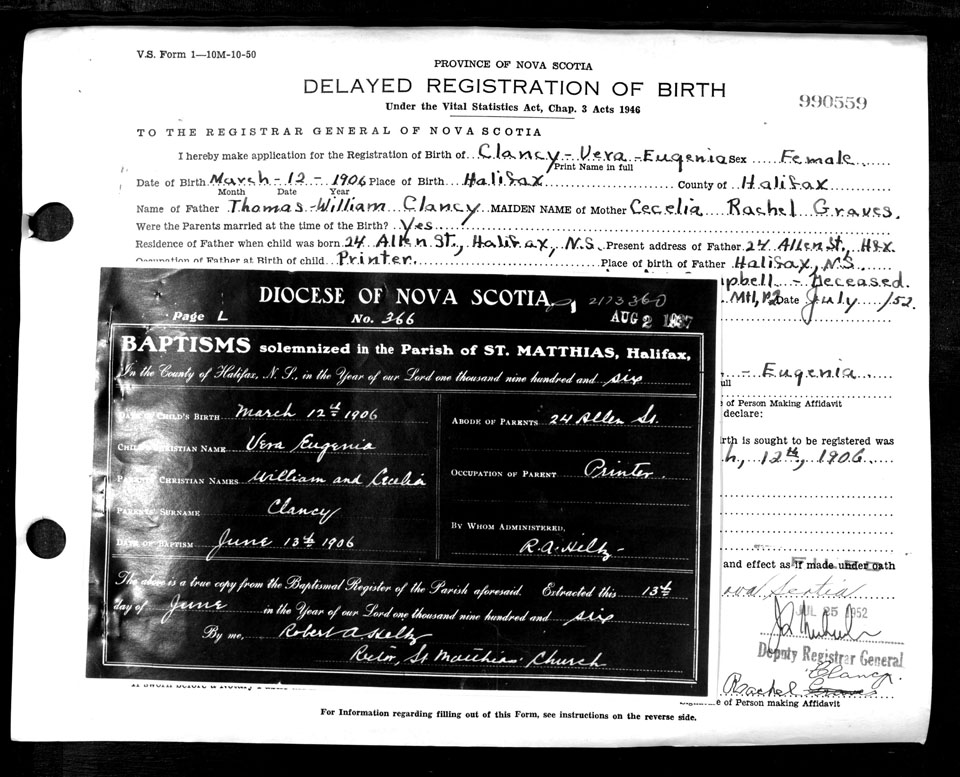 V.S. Form 1—10M-10-50
PROVINCE OF NOVA SCOTIA
DELAYED REGISTRATION OF BIRTH
990559
Under the Vital Statistics Act, Chap. 3 Acts 1946
TO THE REGISTRAR GENERAL OF NOVA SCOTIA
I hereby make application for the Registration of Birth of Clancy - Vera - Eugenia Sex Female
Print Name in full
Date of Birth March - 12 - 1906 Place of Birth Halifax County of Halifax
Month Date Year
Name of Father Thomas William Clancy MAIDEN NAME of Mother Cecelia Rachel Graves.
Were the Parents married at the time of the Birth? Yes
Residence of Father when child was born 24 Allen St., Halifax, N.S. Present address of Father 24 Allen St., Hfx
Occupation of Father at Birth of child Printer. Place of birth of Father Halifax, N.S.
pbell - Deceased.
Date July /52.
DIOCESE OF NOVA SCOTIA.
217336
Page L No. 366 AUG 2 1937
BAPTISMS solemnized in the Parish of ST. MATTHIAS, Halifax,
In the County of Halifax, N. S., in the Year of our Lord one thousand nine hundred and six
DATE OF CHILD'S BIRTH March 12th 1906
ABODE OF PARENTS 24 Allen St.
CHILD'S CHRISTIAN NAME Vera Eugenia
PARENTS CHRISTIAN NAMES William and Cecelia
OCCUPATION OF PARENT Printer.
PARENTS' SURNAME Clancy
BY WHOM ADMINISTERED,
DATE OF BAPTISM June 13th 1906
R. A. Hiltz
The above is a true copy from the Baptismal Register of the Parish aforesaid. Extracted this 13th
day of June in the Year of our Lord one thousand nine hundred and six
By me, Robert A Hiltz
Rector, St Matthias Church
- Eugenia
ull
e of Person Making Affidavit
declare:
rth is sought to be registered was
h, 12th, 1906
and effect as if made under oath
ova Scotia
JUL 25 1952
Deputy Registrar General
Clancy.
Rachel Graves
e of Person making Affidavit
For Information regarding filling out of this Form, see instructions on the reverse side.